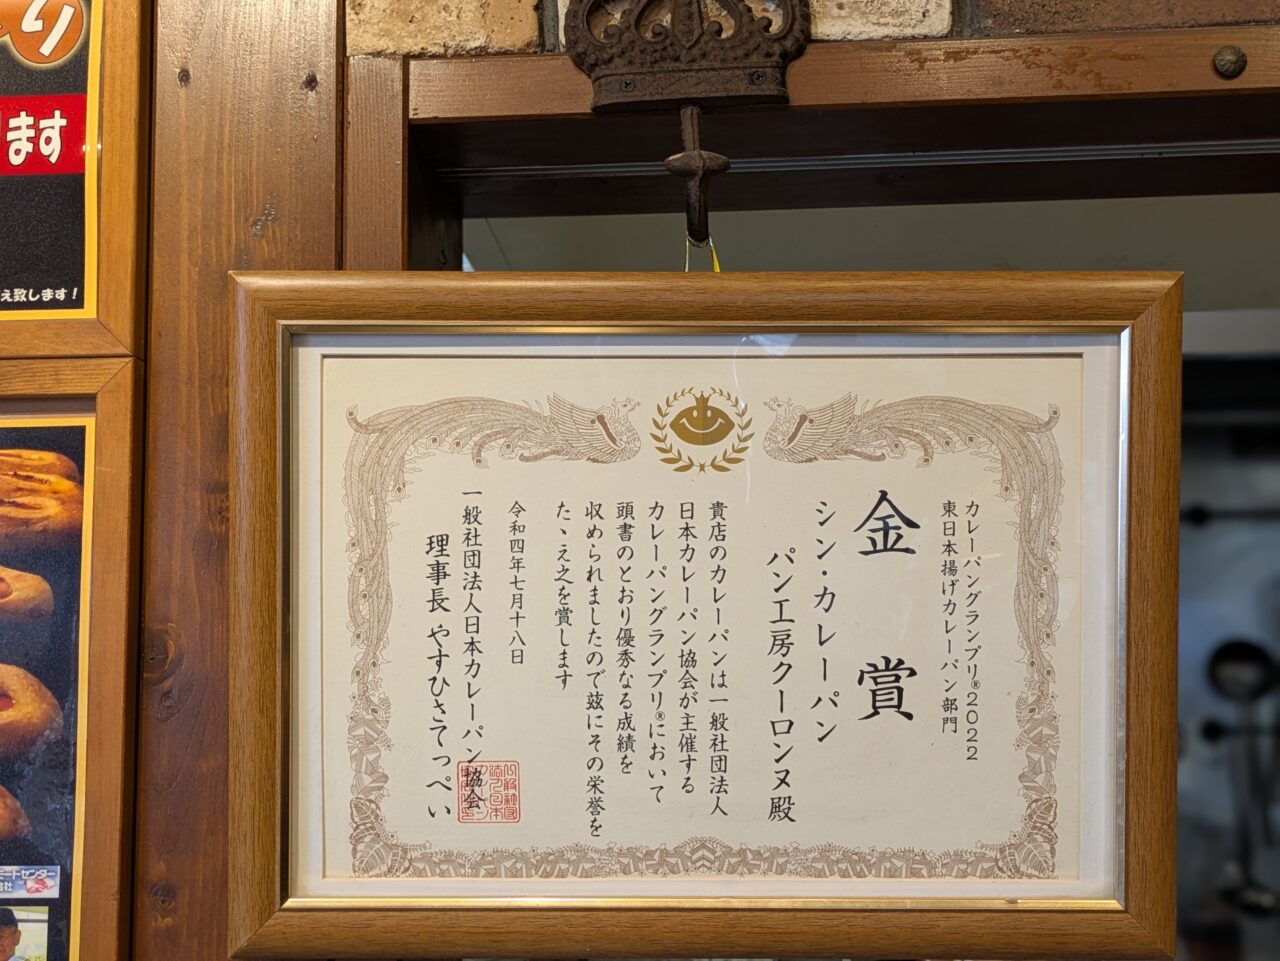 り
ます
え致します！
モートセンター
会社
カレーパングランプリ®2022
東日本揚げカレーパン部門
金賞
シン・カレーパン
パン工房クーロンヌ殿
貴店のカレーパンは一般社団法人
日本カレーパン協会が主催する
カレーパングランプリ®において
頭書のとおり優秀なる成績を
収められましたので茲にその栄誉を
たゝえ之を賞します
令和四年七月十八日
一般社団法人日本カレーパン協会
理事長 やすひさてっぺい